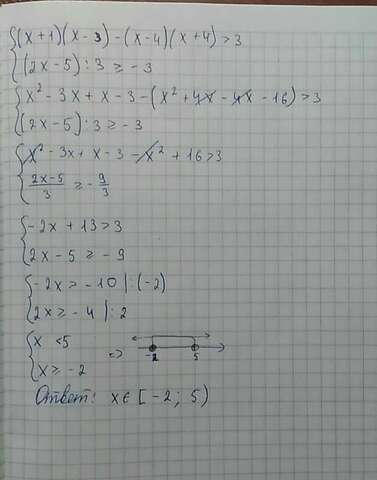 (x+1)(x-3)-(x-4)(x+4)>3
(2x-5):3≥-3
x²-3x+x-3-(x²+4x-4x-16)>3
(2x-5):3≥-3
x²-3x+x-3-x²+16>3
(2x-5)/3≥-9/3
-2x+13>3
2x-5≥-9
-2x>-10|:(-2)
2x≥-4|:2
x<5
x≥-2
=>
-2 5
Ответ: x∈[-2; 5)